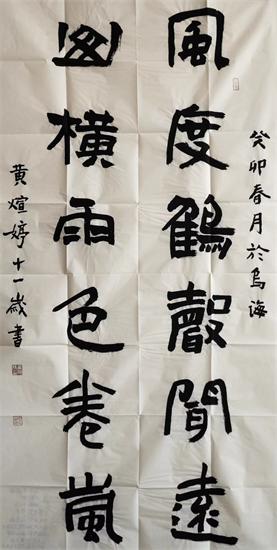 癸卯春月於烏海
風度鶴聲聞遠
山橫雨色卷嵐
黄煊婷十一歲書